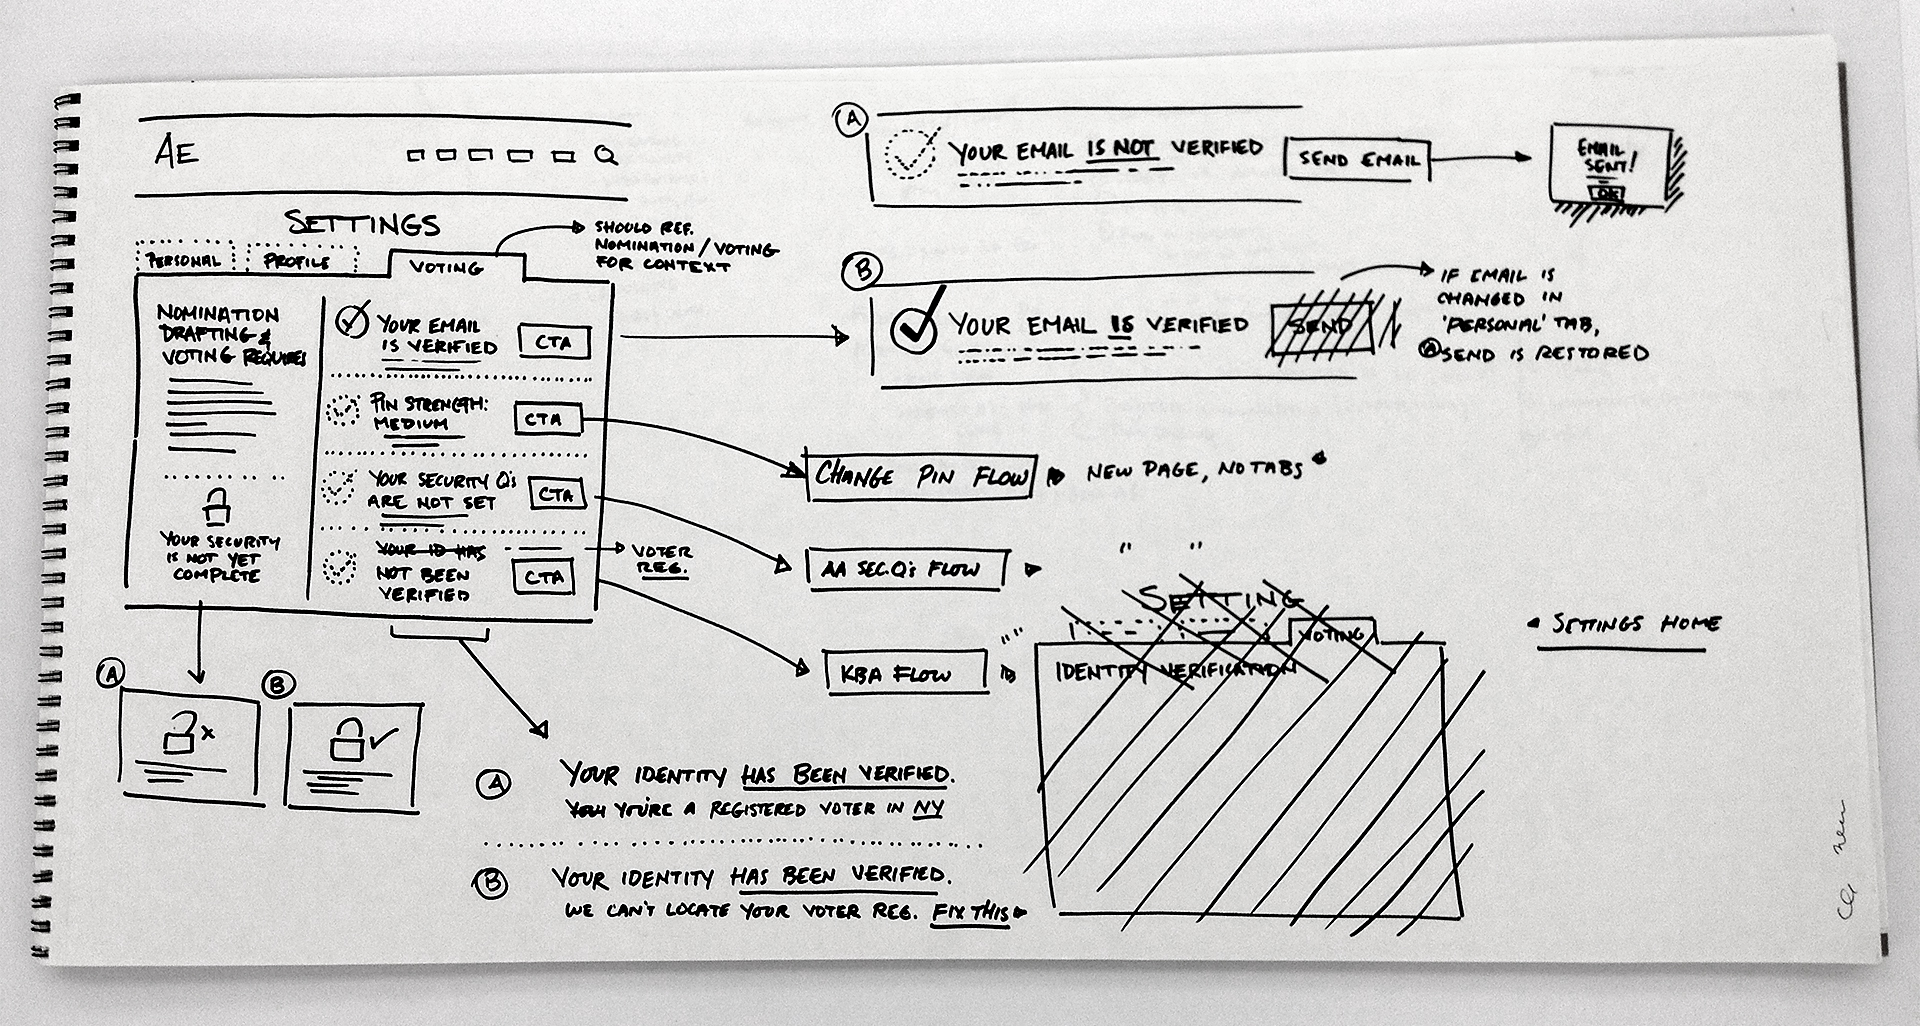 AE
SETTINGS
PERSONAL
PROFILE
VOTING
SHOULD REF.
NOMINATION / VOTING
FOR CONTEXT
NOMINATION
DRAFTING &
VOTING REQUIRES
YOUR SECURITY
IS NOT YET
COMPLETE
YOUR EMAIL
IS VERIFIED
CTA
PIN STRENGTH:
MEDIUM
CTA
YOUR SECURITY Q's
ARE NOT SET
CTA
YOUR ID HAS
NOT BEEN
VERIFIED
CTA
VOTER
REG.
A
B
A
YOUR EMAIL IS NOT VERIFIED
SEND EMAIL
EMAIL
SENT!
OK
B
YOUR EMAIL IS VERIFIED
SEND
IF EMAIL IS
CHANGED IN
'PERSONAL' TAB,
A SEND IS RESTORED
CHANGE PIN FLOW
NEW PAGE, NO TABS
AA SEC.Q's FLOW
" "
KBA FLOW
" "
SETTING
VOTING
IDENTITY VERIFICATION
SETTINGS HOME
A
YOUR IDENTITY HAS BEEN VERIFIED.
YOU YOU'RE A REGISTERED VOTER IN NY
B
YOUR IDENTITY HAS BEEN VERIFIED.
WE CAN'T LOCATE YOUR VOTER REG. FIX THIS